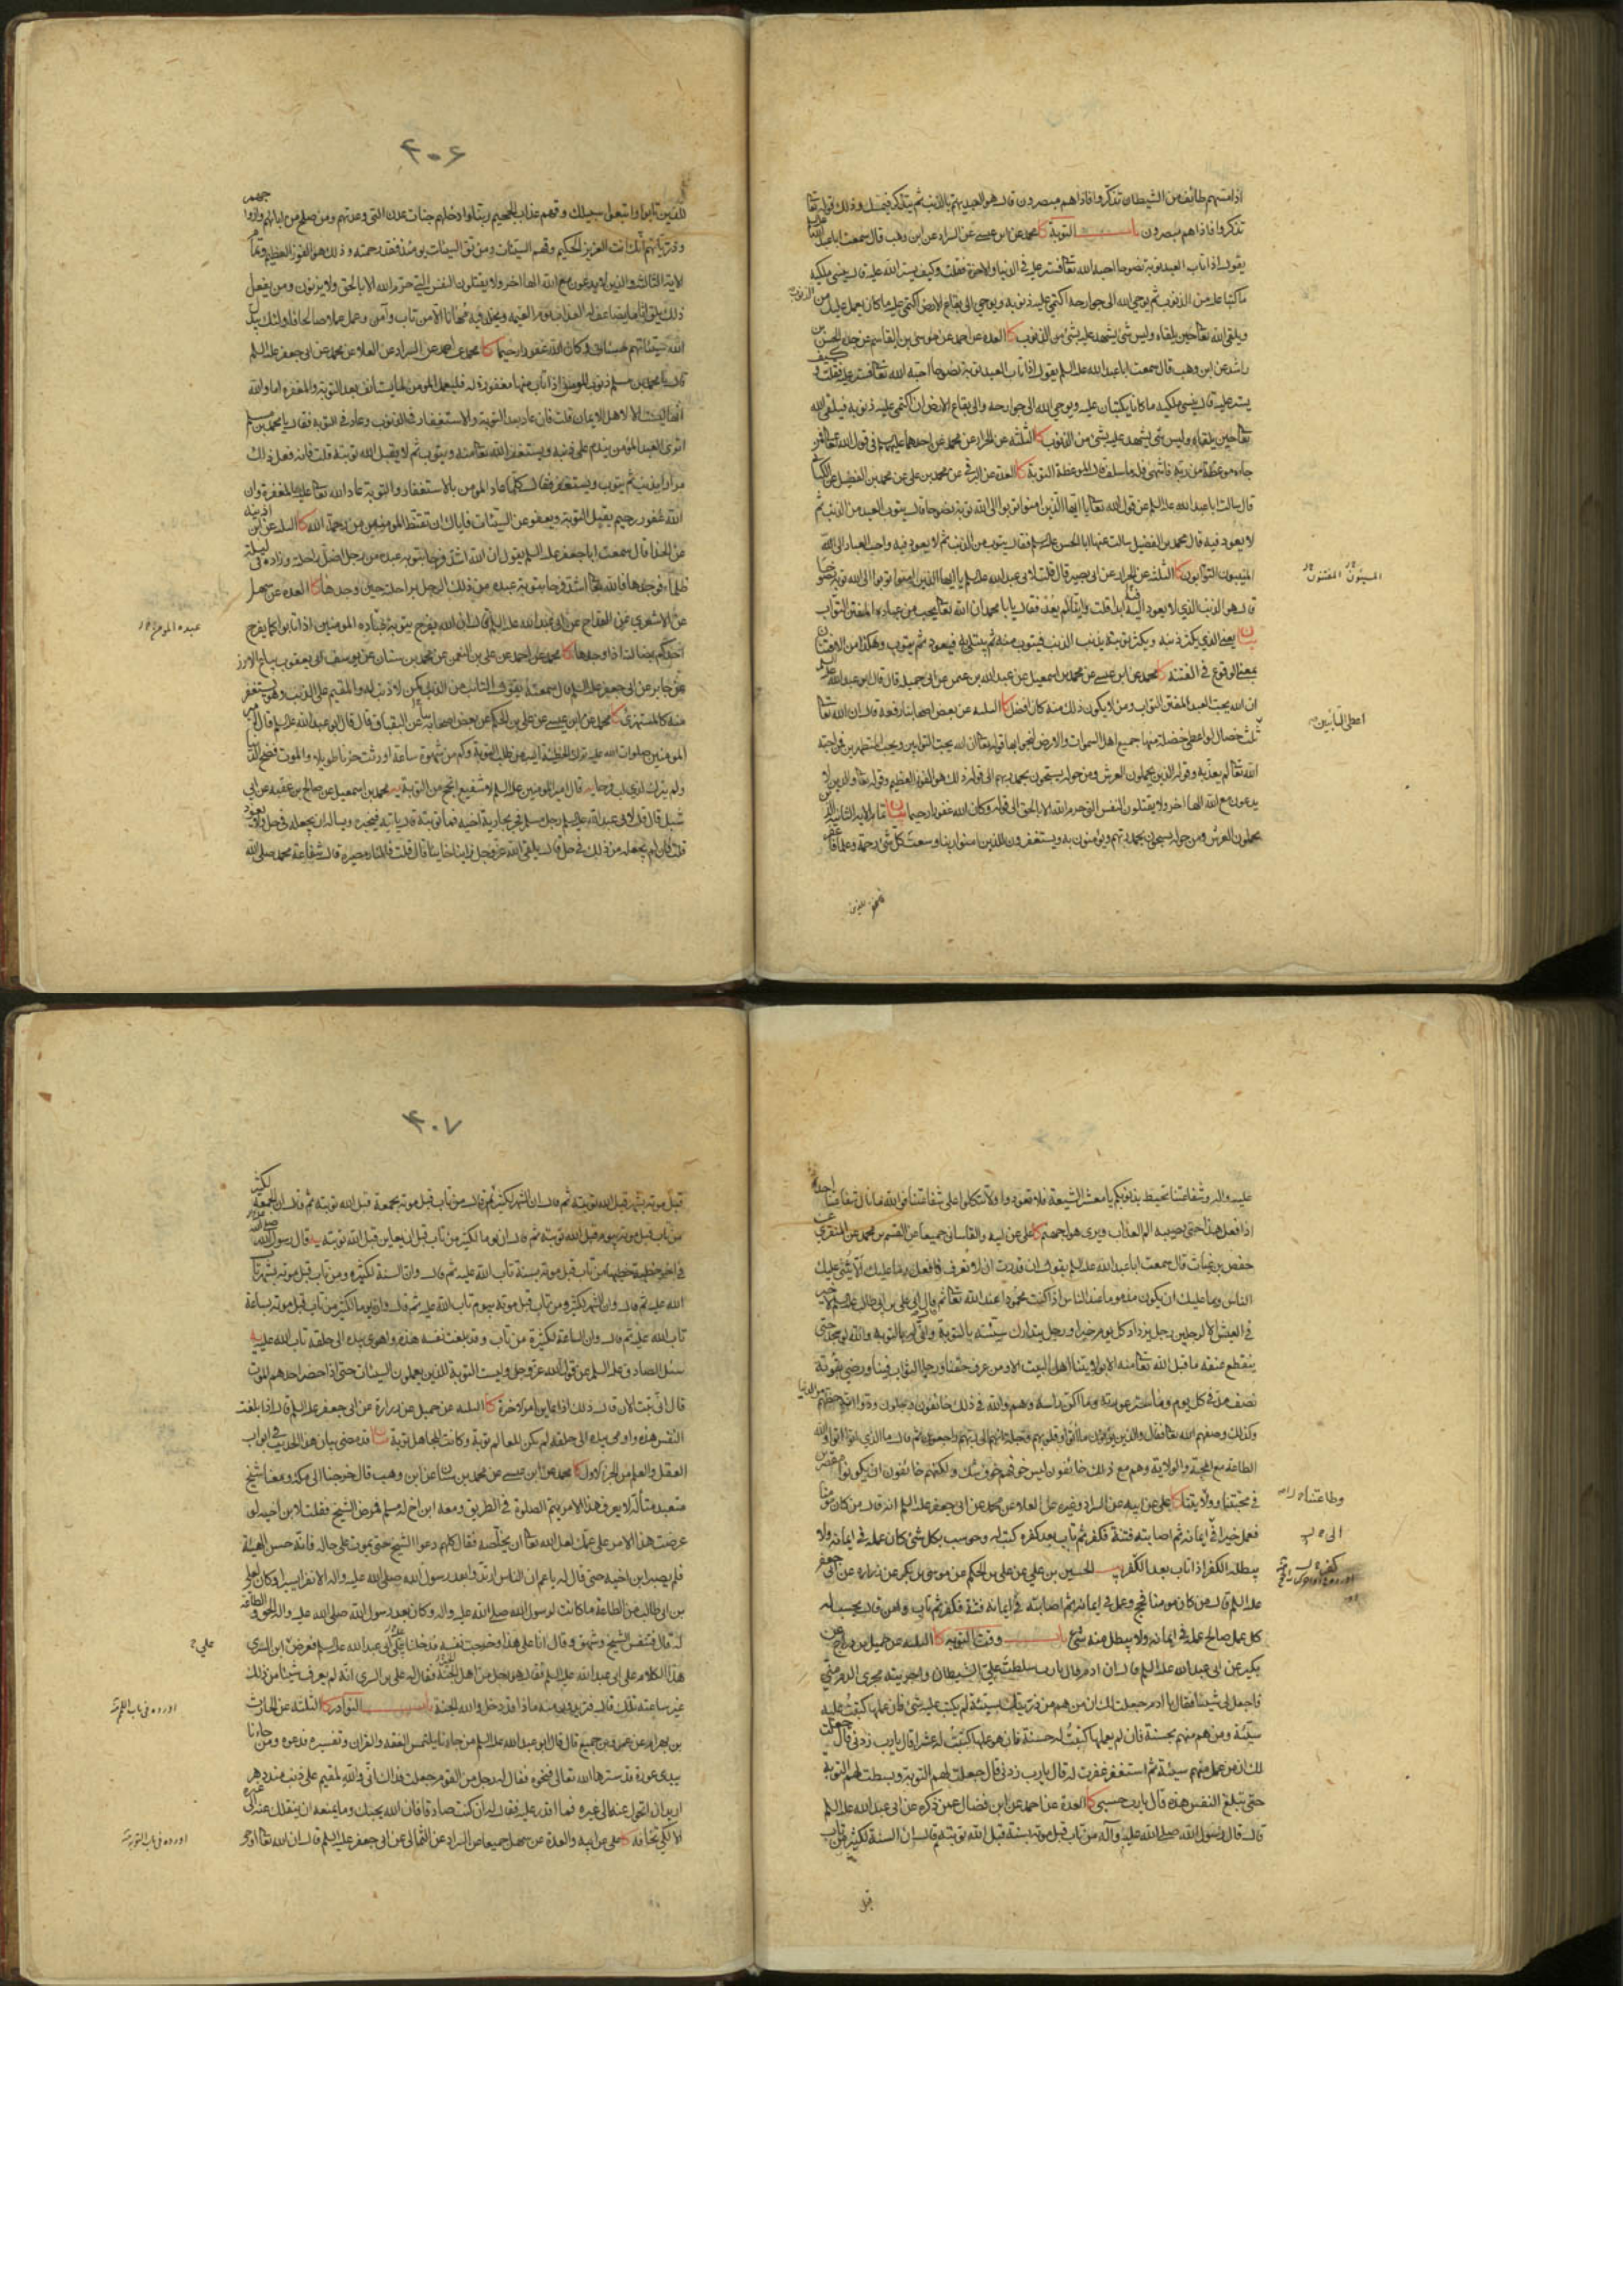 اذا مسهم طائف من الشيطان تذكروا فاذا هم مبصرون قال هو العبد يهم بالذنب ثم يتذكر فيمسك وذلك قوله تعا
تذكروا فاذا هم مبصرون باب التوبة كا محمد عن ابن عيسى عن السراد عن ابن وهب قال سمعت ابا عبد الله
يقول اذا تاب العبد توبة نصوحا احبه الله تعا فستر عليه في الدنيا والاخرة فقلت وكيف يستر الله عليه قال ينسي ملكيه
ما كتبا عليه من الذنوب ثم يوحي الله الى جوارحه اكتمي عليه ذنوبه ويوحي الى بقاع الارض اكتمي عليه ما كان يعمل عليك من الذنوب
ويلقى الله تعا حين يلقاه وليس شئ يشهد عليه بشئ من الذنوب كا العدة عن احمد عن موسى بن القاسم عن جده الحسن بن
راشد عن ابن وهب قال سمعت ابا عبد الله عليه السلم يقول اذا تاب العبد توبة نصوحا احبه الله تعا فستر عليه فقلت وكيف
يستر عليه قال ينسي ملكيه ما كانا يكتبان عليه ويوحي الله الى جوارحه والى بقاع الارض ان اكتمي عليه ذنوبه فيلقى الله
تعا حين يلقاه وليس شئ يشهد عليه بشئ من الذنوب كا الثلثة عن الخراز عن محمد عن احدهما عليهما السلم في قول الله تعا فمن
جاءه موعظة من ربه فانتهى فله ما سلف قال الموعظة التوبة كا العدة عن البرقي عن محمد بن علي عن محمد بن الفضيل عن الكناني
قال سالت ابا عبد الله عليه السلم عن قول الله تعا يا ايها الذين امنوا توبوا الى الله توبة نصوحا قال يتوب العبد من الذنب ثم
لا يعود فيه قال محمد بن الفضيل سالت عنها ابا الحسن عليه السلم فقال يتوب من الذنب ثم لا يعود فيه واحب العباد الى الله
المنيبون التوابون كا الثلثة عن الخراز عن ابي بصير قال قلت لابي عبد الله عليه السلم يا ايها الذين امنوا توبوا الى الله توبة نصوحا
قال هو الذنب الذي لا يعود فيه ابدا قلت واينا لم يعد فقال يا با محمد ان الله تعا يحب من عباده المفتن التواب
بيان يعني الذي يكثر ذنبه ويكثر توبته يذنب الذنب فيتوب منه ثم يبتلى به فيعود ثم يتوب وهكذا من الافتتان
بمعنى الوقوع في الفتنة كا محمد عن ابن عيسى عن محمد بن اسمعيل عن عبد الله بن عثمن عن ابي جميلة قال قال ابو عبد الله عليه السلم
ان الله يحب العبد المفتن التواب ومن لا يكون ذلك منه كان افضل كا الثلثة عن بعض اصحابنا رفعه قال ان الله تعا
ثلث خصال لو اعطى خصلة منها جميع اهل السموات والارض لنجوا بها قوله تعا ان الله يحب التوابين ويحب المتطهرين فمن احبه
الله تعا لم يعذبه وقوله الذين يحملون العرش ومن حوله يسبحون بحمد ربهم الى قوله ذلك هو الفوز العظيم وقوله تعا والذين لا
يدعون مع الله الها اخر ولا يقتلون النفس التي حرم الله الا بالحق الى قوله وكان الله غفورا رحيما بيان تمام الاية الثانية الذين
يحملون العرش ومن حوله يسبحون بحمد ربهم ويؤمنون به ويستغفرون للذين امنوا ربنا وسعت كل شئ رحمة وعلما فاغفر
المنيبون المفتنون
اعطى التائبين
فاغفر للذين
۴۰۶
للذين تابوا واتبعوا سبيلك وقهم عذاب الجحيم ربنا وادخلهم جنات عدن التي وعدتهم ومن صلح من ابائهم وازواجهم
وذرياتهم انك انت العزيز الحكيم وقهم السيئات ومن تق السيئات يومئذ فقد رحمته وذلك هو الفوز العظيم وتمام
الاية الثالثة والذين لا يدعون مع الله الها اخر ولا يقتلون النفس التي حرم الله الا بالحق ولا يزنون ومن يفعل
ذلك يلق اثاما يضاعف له العذاب يوم القيمة ويخلد فيه مهانا الا من تاب وآمن وعمل عملا صالحا فاولئك يبدل
الله سيئاتهم حسنات وكان الله غفورا رحيما كا محمد عن احمد عن السراد عن العلا عن محمد عن ابي جعفر عليه السلم
قال يا محمد بن مسلم ذنوب المؤمن اذا تاب منها مغفورة له فليعمل المؤمن لما يستانف بعد التوبة والمغفرة اما والله
انها ليست الا لاهل الايمان قلت فان عاد بعد التوبة والاستغفار في الذنوب وعاد في التوبة فقال يا محمد بن مسلم
اترى العبد المؤمن يندم على ذنبه ويستغفر الله تعا منه ويتوب ثم لا يقبل الله توبته قلت فانه فعل ذلك
مرارا يذنب ثم يتوب ويستغفر فقال كلما عاد المؤمن بالاستغفار والتوبة عاد الله تعا عليه بالمغفرة وان
الله غفور رحيم يقبل التوبة ويعفو عن السيئات فاياك ان تقنط المؤمنين من رحمة الله كا الثلثة عن ابن اذينة
عن الحذاء قال سمعت ابا جعفر عليه السلم يقول ان الله اشد فرحا بتوبة عبده من رجل اضل راحلته وزاده في ليلة
ظلماء فوجدها فالله تعا اشد فرحا بتوبة عبده من ذلك الرجل براحلته حين وجدها كا العدة عن سهل
عن الاشعري عن القداح عن ابي عبد الله عليه السلم قال ان الله يفرح بتوبة عباده المؤمنين اذا تابوا كما يفرح
احدكم بضالته اذا وجدها كا محمد عن احمد عن علي بن النعمن عن محمد بن سنان عن يوسف ابي يعقوب بياع الارز
عن جابر عن ابي جعفر عليه السلم قال سمعته يقول التائب من الذنب كمن لا ذنب له والمقيم على الذنب وهو يستغفر
منه كالمستهزئ كا محمد عن ابن عيسى عن علي بن الحكم عن بعض اصحابنا عن البقباق قال قال ابو عبد الله عليه السلم قال امير
المؤمنين صلوات الله عليه ترك الخطيئة ايسر من طلب التوبة وكم من شهوة ساعة اورثت حزنا طويلا والموت فضح الدنيا
ولم يترك لذي لب فرحا يه قال امير المؤمنين عليه السلم لا شفيع انجح من التوبة يه محمد بن اسمعيل عن صالح بن عقبة عن ابي
شبل قال قلت لابي عبد الله عليه السلم رجل مسلم فجر بجارية اخيه فما توبته قال ياتيه فيخبره ويساله ان يجعله في حل ولا يعود
قلت فان لم يجعله من ذلك في حل قال يلقى الله عز وجل زانيا خائنا قال قلت فالنار مصيره قال شفاعة محمد صلى الله
عبده المؤمن
عليه واله وشفاعتنا تحيط بذنوبكم يا معشر الشيعة فلا تعودوا ولا تتكلوا على شفاعتنا فوالله ما ينال شفاعتنا احد
اذا فعل هذا حتى يصيبه الم العذاب ويرى هول جهنم كا علي عن ابيه والقاساني جميعا عن القسم بن محمد عن المنقري عن
حفص بن غياث قال سمعت ابا عبد الله عليه السلم يقول ان قدرت ان لا تعرف فافعل وما عليك الا يثني عليك
الناس وما عليك ان يكون مذموما عند الناس اذا كنت محمودا عند الله تعا ثم قال ابي علي بن ابي طالب عليه السلم لا خير
في العيش الا لرجلين رجل يزداد كل يوم خيرا ورجل يتدارك سيئته بالتوبة وانى له بالتوبة والله لو سجد حتى
ينقطع عنقه ما قبل الله تعا منه الا بولايتنا اهل البيت الا ومن عرف حقنا ورجا الثواب فينا ورضي بقوته
نصف مد في كل يوم وما ستر عورته وما اكن راسه وهم والله في ذلك خائفون وجلون ودوا انه حظهم من الدنيا
وكذلك وصفهم الله تعا فقال والذين يؤتون ما اتوا وقلوبهم وجلة انهم الى ربهم راجعون ثم قال ما الذي اتوا اتوا والله
الطاعة مع المحبة والولاية وهم مع ذلك خائفون ليس خوفهم خوف شك ولكنهم خافوا ان يكونوا مقصرين
في محبتنا وولايتنا كا علي عن ابيه عن السراد وغيره عن العلا عن محمد عن ابي جعفر عليه السلم انه قال من كان مؤمنا
فعمل خيرا في ايمانه ثم اصابته فتنة فكفر ثم تاب بعد كفره كتب له وحوسب بكل شئ كان عمله في ايمانه ولا
يبطله الكفر اذا تاب بعد الكفر يب الحسين بن علي عن علي بن الحكم عن موسى بن بكر عن زرارة عن ابي جعفر
عليه السلم قال من كان مؤمنا فحج وعمل في ايمانه ثم اصابته في ايمانه فتنة فكفر ثم تاب وامن قال يحسب له
كل عمل صالح عمله في ايمانه ولا يبطل منه شئ باب وقت التوبة كا الثلثة عن جميل بن دراج عن
بكير عن ابي عبد الله عليه السلم قال ان ادم قال يا رب سلطت علي الشيطان واجريته مجرى الدم مني
فاجعل لي شيئا فقال يا ادم جعلت لك ان من هم من ذريتك بسيئة لم يكتب عليه شئ فان عملها كتبت عليه
سيئة ومن هم منهم بحسنة فان لم يعملها كتبت له حسنة فان هو عملها كتبت له عشرا قال يا رب زدني قال جعلت
لك ان من عمل منهم سيئة ثم استغفر غفرت له قال يا رب زدني قال جعلت لهم التوبة وبسطت لهم التوبة
حتى تبلغ النفس هذه قال يا رب حسبي كا العدة عن احمد عن ابن فضال عمن ذكره عن ابي عبد الله عليه السلم
قال قال رسول الله صلى الله عليه وآله من تاب قبل موته بسنة قبل الله توبته ثم قال ان السنة لكثير من تاب
وطاعتنا
الى
قبل
۴۰۷
قبل موته بشهر قبل الله توبته ثم قال ان الشهر لكثير ثم قال من تاب قبل موته بجمعة قبل الله توبته ثم قال ان الجمعة لكثير
من تاب قبل موته بيوم قبل الله توبته ثم قال ان يوما لكثير من تاب قبل ان يعاين قبل الله توبته يه قال رسول الله
في اخر خطبة خطبها من تاب قبل موته بسنة تاب الله عليه ثم قال وان السنة لكثيرة ومن تاب قبل موته بشهر تاب
الله عليه ثم قال وان الشهر لكثير ومن تاب قبل موته بيوم تاب الله عليه ثم قال وان يوما لكثير من تاب قبل موته بساعة
تاب الله عليه ثم قال وان الساعة لكثيرة من تاب وقد بلغت نفسه هذه واهوى بيده الى حلقه تاب الله عليه يه
سئل الصادق عليه السلم عن قول الله عز وجل وليست التوبة للذين يعملون السيئات حتى اذا حضر احدهم الموت
قال اني تبت الان قال ذلك اذا عاين امر الاخرة كا الثلثة عن جميل عن زرارة عن ابي جعفر عليه السلم قال اذا بلغت
النفس هذه واومى بيده الى حلقه لم يكن للعالم توبة وكانت للجاهل توبة بيان قد مضى بيان هذا الحديث في ابواب
العقل والعلم من الجزء الاول كا محمد عن ابن عيسى عن محمد بن سنان عن ابن وهب قال خرجنا الى مكة ومعنا شيخ
متعبد متاله لا يعرف هذا الامر يتم الصلوة في الطريق ومعه ابن اخ له مسلم فمرض الشيخ فقلت لابن اخيه لو
عرضت هذا الامر على عمك لعل الله تعا ان يخلصه فقال كلهم دعوا الشيخ حتى يموت على حاله فانه حسن الهيئة
فلم يصبر ابن اخيه حتى قال له يا عم ان الناس ارتدوا بعد رسول الله صلى الله عليه واله الا نفرا يسيرا وكان لعلي
بن ابي طالب من الطاعة ما كانت لرسول الله صلى الله عليه واله وكان بعد رسول الله صلى الله عليه واله الحق والطاعة
له قال فتنفس الشيخ وشهق وقال انا على هذا وخرجت نفسه فدخلنا على ابي عبد الله عليه السلم فعرض ابن السري
هذا الكلام على ابي عبد الله عليه السلم فقال هو رجل من اهل الجنة فقال له علي بن السري انه لم يعرف شيئا من ذلك
غير ساعته تلك قال فتريدون منه ماذا قد دخل والله الجنة باب النوادر كا الثلثة عن الحارث
بن بهرام عن عمرو بن جميع قال قال ابو عبد الله عليه السلم من جاءنا يلتمس الفقه والقران وتفسيره فدعوه ومن جاءنا
يبدي عورة قد سترها الله تعالى فنحوه فقال له رجل من القوم جعلت فداك اني والله لمقيم على ذنب منذ دهر
اريد ان اتحول عنه الى غيره فما اقدر عليه فقال له ان كنت صادقا فان الله يحبك وما يمنعه ان ينقلك عنه الى غيره
الا لكي تخافه كا علي عن ابيه والعدة عن سهل جميعا عن السراد عن الثمالي عن ابي جعفر عليه السلم قال ان الله تعا اوحى
علي
اورده في باب
اورده في باب التوبة